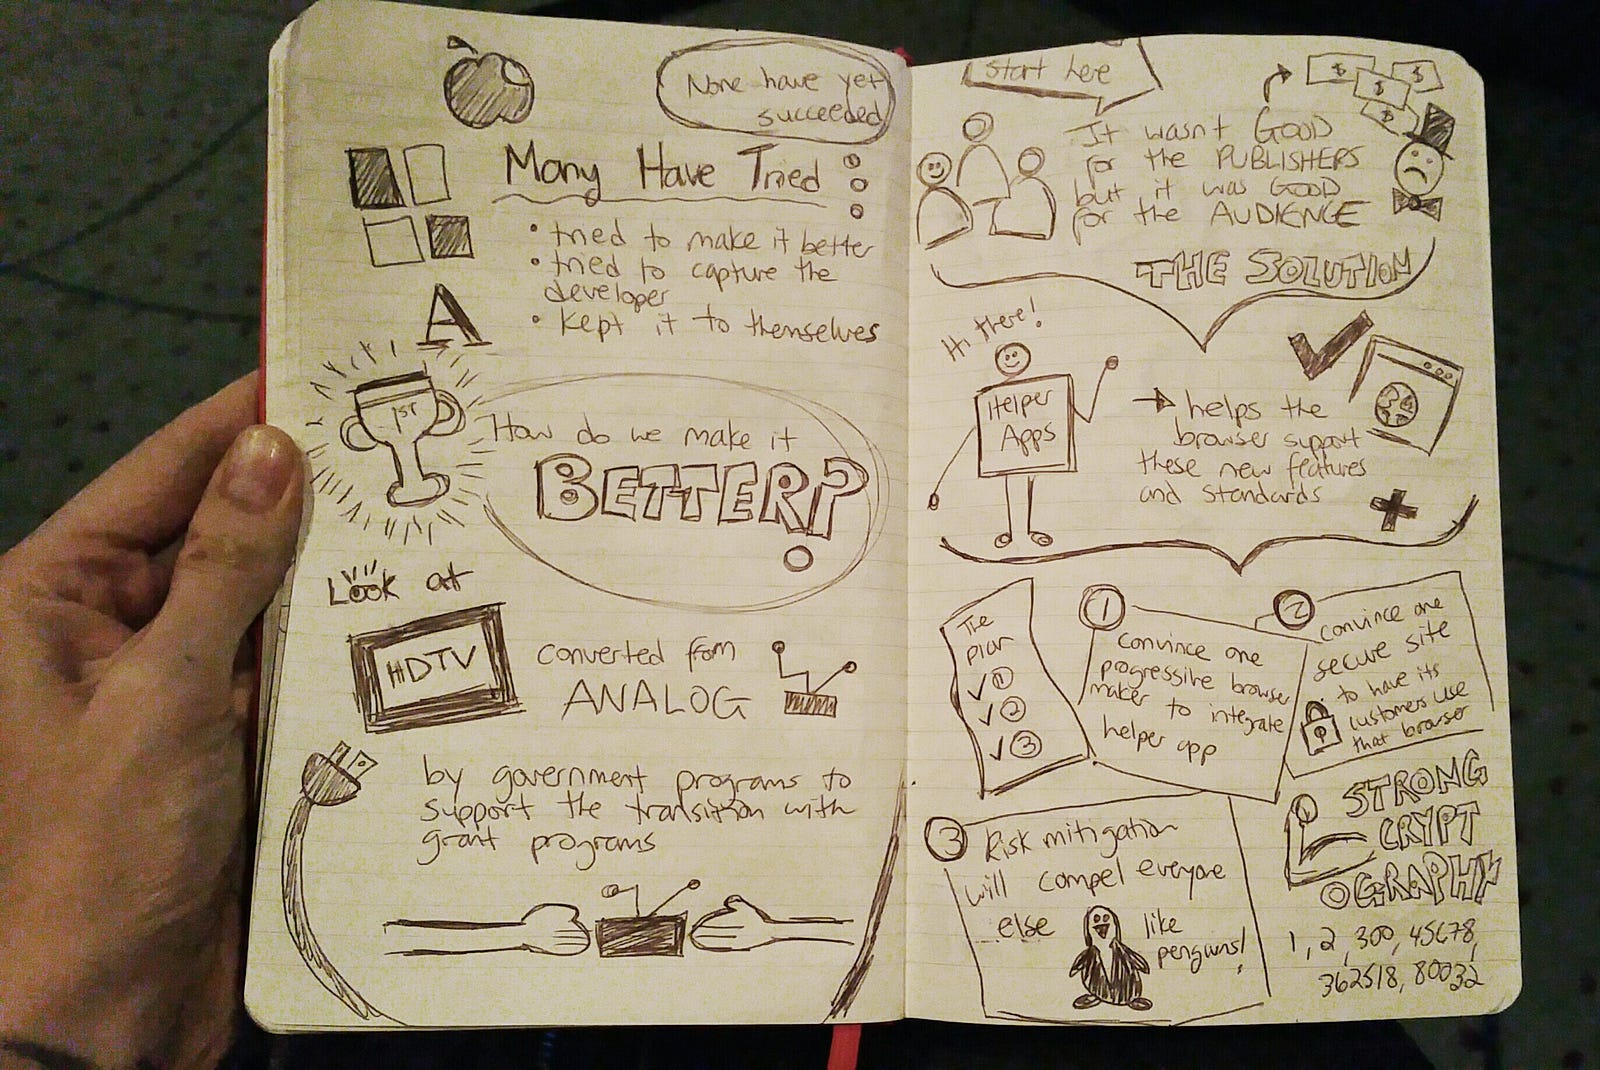 None have yet
succeeded
Many Have Tried
• tried to make it better
• tried to capture the
developer
• kept it to themselves
A
1st
How do we make it
BETTER?
Look at
HDTV
converted from
ANALOG
by government programs to
support the transition with
grant programs
start here
$ $
$
$
It wasn't GOOD
for the PUBLISHERS
but it was GOOD
for the AUDIENCE
THE SOLUTION
Hi there!
Helper
Apps
helps the
browser support
these new features
and standards
The
plan
✓ 1
✓ 2
✓ 3
1
convince one
progressive browser
maker to integrate
helper app
2
convince one
secure site
to have its
customers use
that browser
3
Risk mitigation
will compel everyone
else like
penguins!
STRONG
CRYPT
OGRAPHY
1, 2, 300, 45678,
362518, 80032